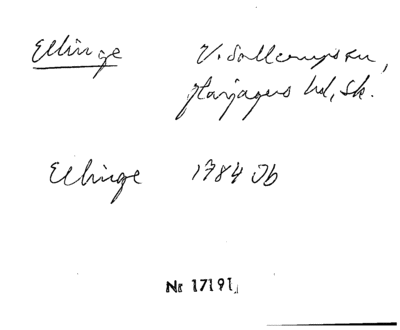 Ellinge V. Sallerups sn,
Harjagers hd, Sk.
Ellinge 1784 Jb
Nr 17191